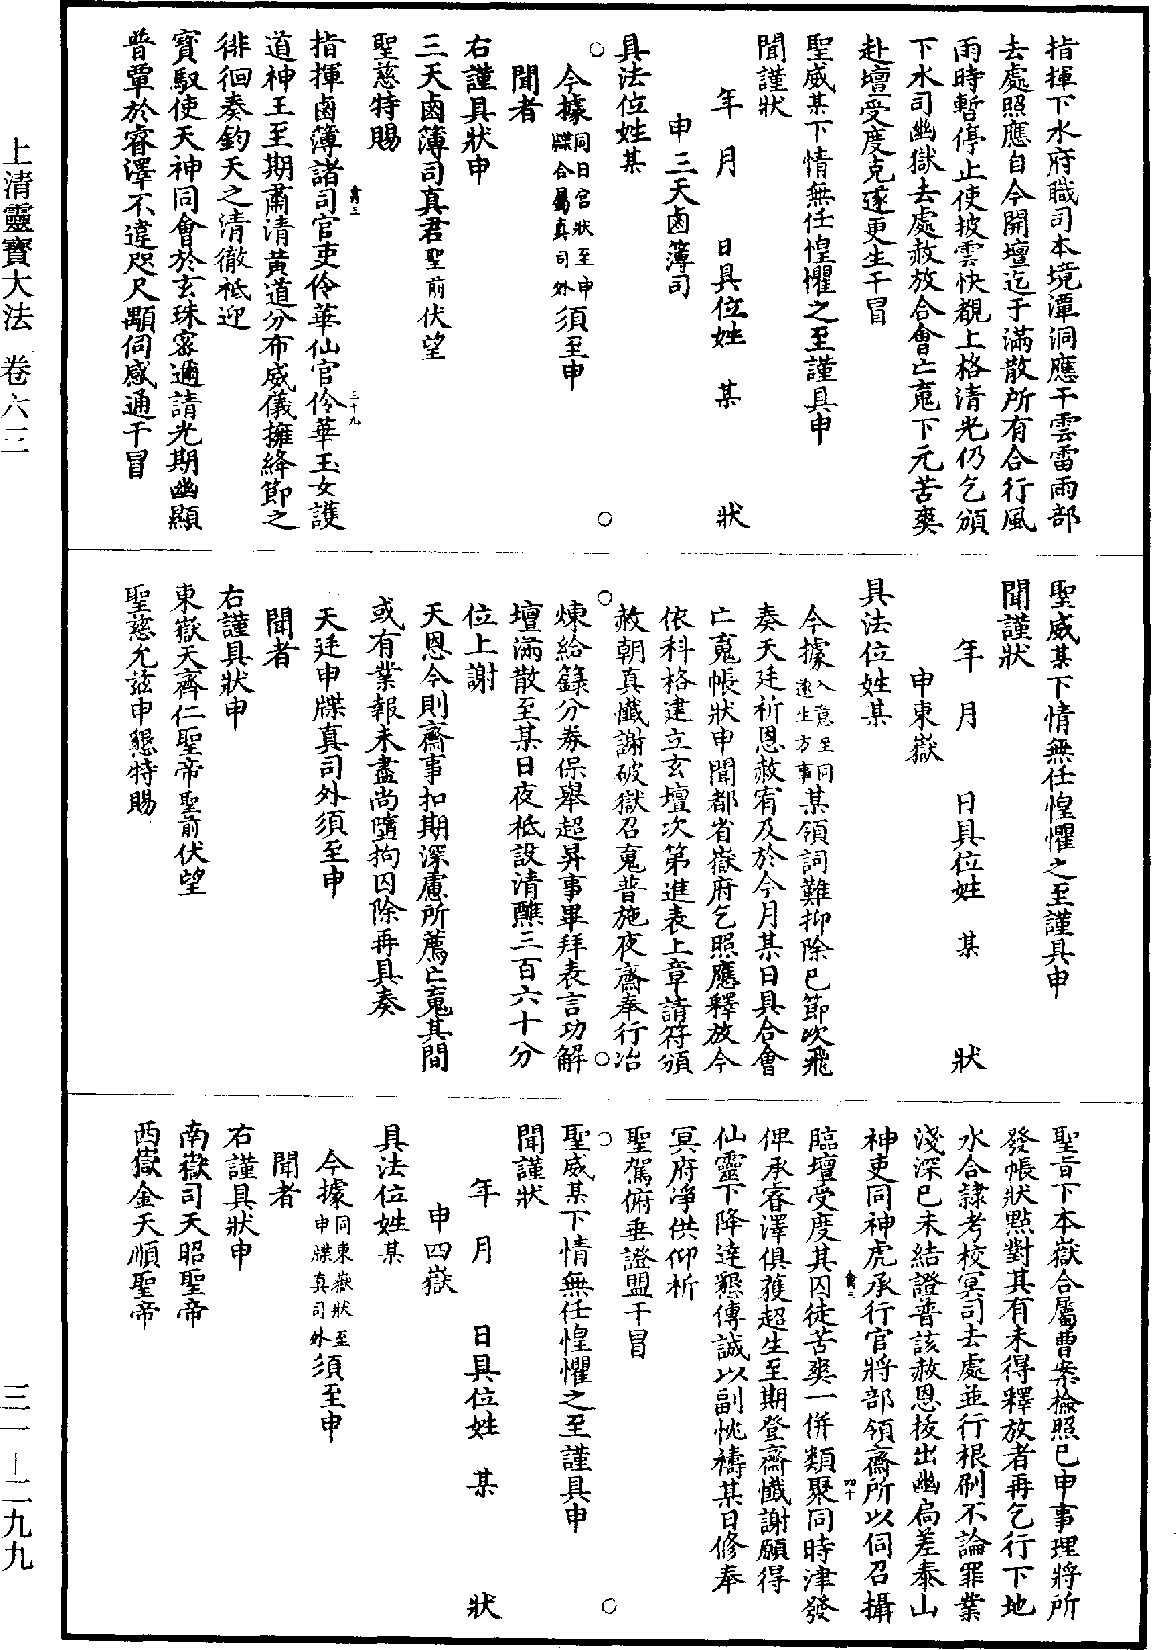 指揮下水府職司本境潭洞應干雲雷雨部
去處照應自今開壇迄于滿散所有合行風
雨時暫停止使披雲快覩上格清光仍乞頒
下水司幽獄去處赦放合會亡䰟下元苦爽
赴壇受度克遂更生干冒
聖威某下情無任惶懼之至謹具申
聞謹狀
年 月 日具位姓 某 狀
申三天鹵簿司
具法位姓某
今據同日宮狀至申牒合屬真司外須至申
聞者
右謹具狀申
三天鹵簿司真君聖前伏望
聖慈特賜
指揮鹵簿諸司官吏伶華仙官伶華玉女護
道神王至期肅清黃道分布威儀擁絳節之
徘徊奏鈞天之清徹祗迎
寶馭使天神同會於玄珠密邇請光期幽顯
普覃於睿澤不違咫尺顒伺感通干冒
聖威某下情無任惶懼之至謹具申
聞謹狀
年 月 日具位姓 某 狀
申東嶽
具法位姓某
今據入意至同遂生方事某領詞難抑除已節次飛
奏天廷祈恩赦宥及於今月某日具合會
亡䰟帳狀申聞都省嶽府乞照應釋放今
依科格建立玄壇次第進表上章請符頒
赦朝真懺謝破獄召䰟普施夜齋奉行冶
煉給籙分券保舉超昇事畢拜表言功解
壇滿散至某日夜祗設清醮三百六十分
位上謝
天恩今則齋事扣期深慮所薦亡䰟其間
或有業報未盡尚隨拘囚除再具奏
天廷申牒真司外須至申
聞者
右謹具狀申
東嶽天齊仁聖帝聖前伏望
聖慈允茲申懇特賜
聖旨下本嶽合屬曹案檢照已申事理將所
發帳狀點對其有未得釋放者再乞行下地
水合隷考校冥司去處並行根刷不論罪業
淺深已未結證普該赦恩拔出幽扃差泰山
神吏同神虎承行官將部領齋所以伺召攝
臨壇受度其囚徒苦爽一併類聚同時津發
俾承睿澤俱獲超生至期登齋懺謝願得
仙靈下降達懇傳誠以副忱禱某日修奉
冥府淨供仰祈
聖駕俯垂證盟干冒
聖威某下情無任惶懼之至謹具申
聞謹狀
年 月 日具位姓 某 狀
申四嶽
具法位姓某
今據同東嶽狀至申牒真司外須至申
聞者
右謹具狀申
南嶽司天昭聖帝
西嶽金天順聖帝
上清靈寶大法 卷六三
三一—二九九
三十九
四十